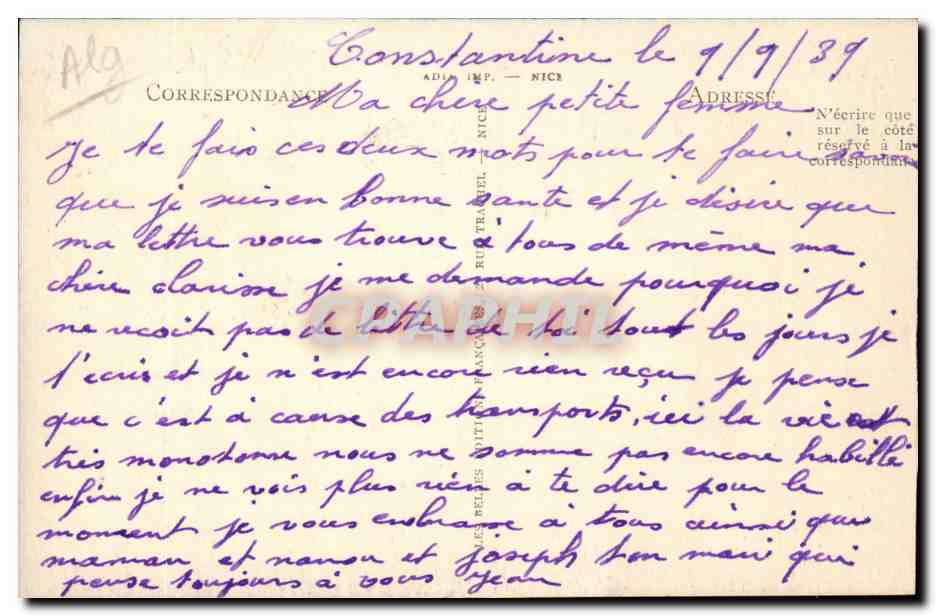 Alg
Constantine le 9/9/39
ADIA IMP. — NICE
CORRESPONDANCE
ADRESSE
Ma chère petite femme
N'écrire que
sur le côté
réservé à la
correspondance
je te fais ces deux mots pour te faire
que je suis en bonne sante et je désire que
ma lettre vous trouve à tous de même ma
chère clarisse je me demande pourquoi je
ne recoit pas de lettre de toi tout les jours je
t'écris et je n'est encore rien reçu je pense
que c'est à cause des transports, ici la vie est
très monotonne nous ne somme pas encore habillé
enfin je ne vois plus rien à te dire pour le
moment je vous embrasse à tous ainsi que
maman et nanou et joseph ton mari qui
pense toujours à vous jean
LES BELLES EDITIONS FRANÇAISES 2 RUE TRACHEL — NICE
CPAPHIL